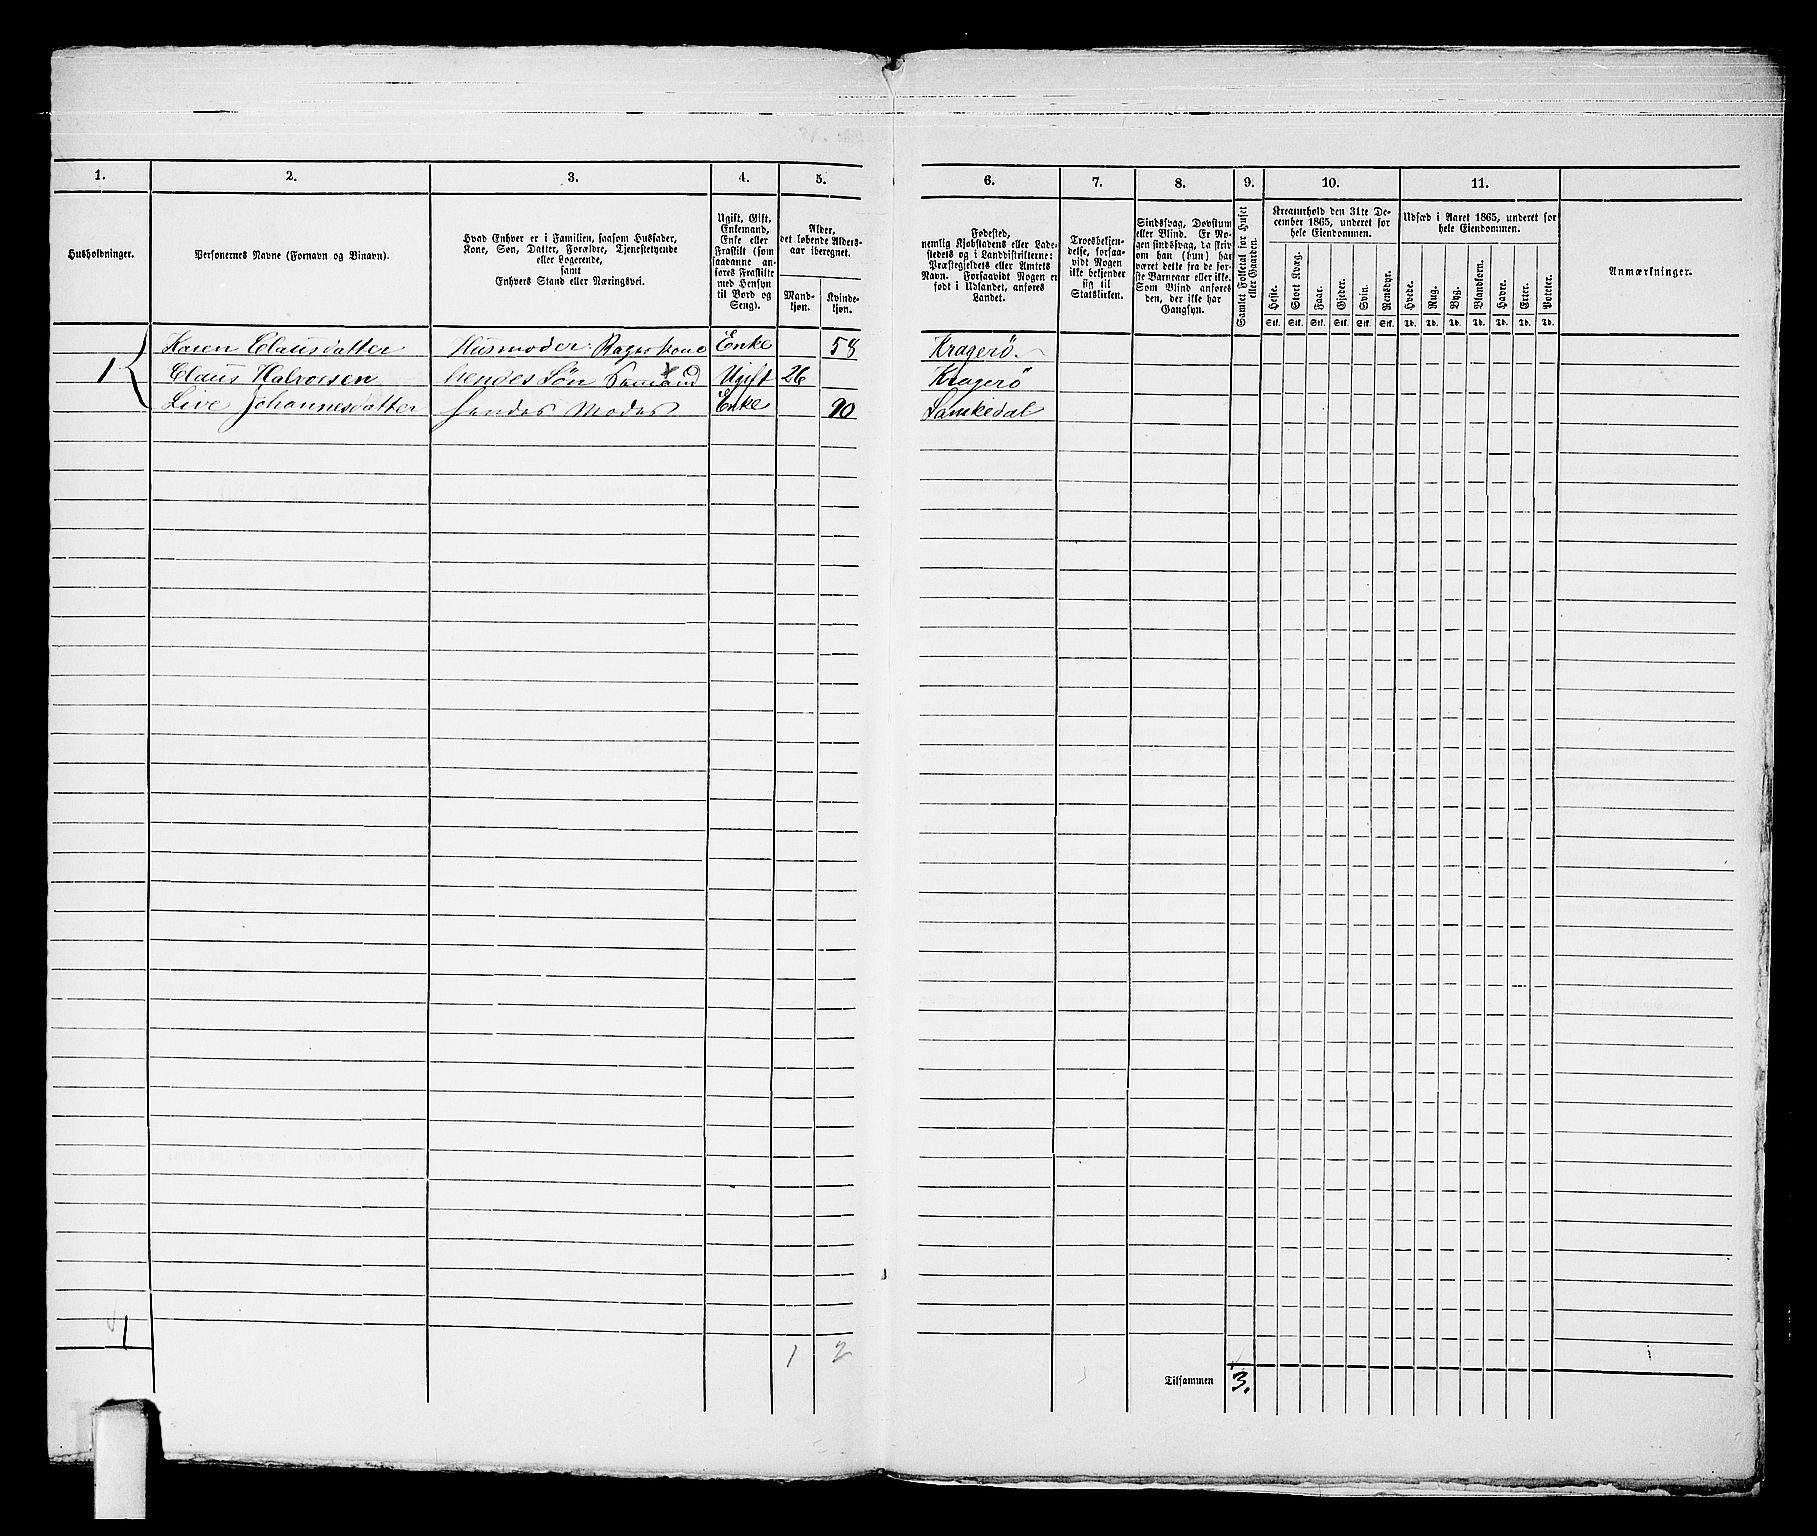 1. 2. 3. 4. 5. 6. 7. 8. 9. 10. 11.
Husholdninger.
Personernes Navne (Fornavn og Binavn).
Hvad Enhver er i Familien, saasom Husfader,
Kone, Søn, Datter, Forældre, Tjenestetyende
eller Logerende,
samt
Enhvers Stand eller Næringsvei.
Ugift, Gift,
Enkemand,
Enke eller
Fraskilt (som
saadanne an-
føres Fraskilte
med Hensyn
til Bord og
Seng).
Alder,
det løbende Alders-
aar iberegnet.
Mand-
kjøn.
Kvinde-
kjøn.
Fødested,
nemlig Kjøbstadens eller Lade-
stedets og i Landdistrikterne:
Præstegjeldets eller Amtets
Navn. Forsaavidt Nogen er
født i Udlandet, anføres
Landet.
Troesbekjen-
delse, forsaa-
vidt Nogen
ikke bekjender
sig til
Statskirken.
Sindssvag, Døvstum
eller Blind. Er No-
gen sindssvag, da skriv
om han (hun) har
været dette fra de før-
ste Barneaar eller ikke.
Som Blind anføres
den, der ikke har
Gangsyn.
Samlet Folketal for Huset
eller Gaarden.
Kreaturhold den 31te De-
cember 1865, underet for
hele Eiendommen.
Heste. Stort Kvæg. Faar. Gjeder. Svin. Rensdyr.
Stk. Stk. Stk. Stk. Stk. Stk.
Udsæd i Aaret 1865, underet for
hele Eiendommen.
Hvede. Rug. Byg. Blandkorn. Havre. Erter. Poteter.
Td. Td. Td. Td. Td. Td. Td.
Anmærkninger.
Karen Clausdatter Husmoder Enke 58 Kragerö
1 Claus Halvorsen hendes Sön Sömand Ugift 26 Kragerö
Live Johannesdatter hendes Moder Enke 90
1 1 2
Tilsammen 3.